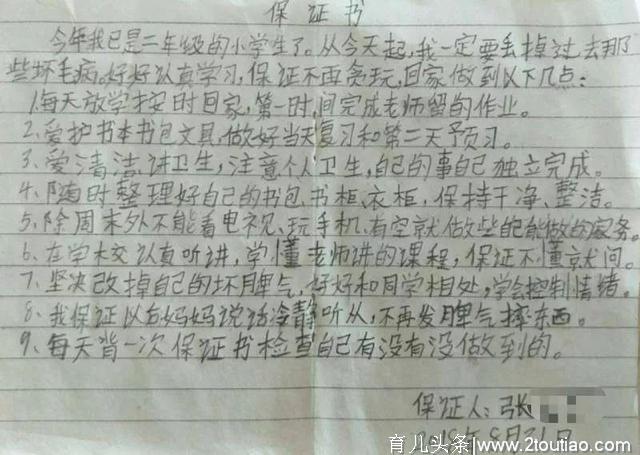 保证书
今年我已是二年级的小学生了。从今天起,我一定要丢掉过去那
些坏毛病,好好认真学习,保证不再贪玩,回家做到以下几点:
1.每天放学按时回家,第一时间完成老师留的作业。
2、爱护书本书包文具,做好当天复习和第二天予习。
3、爱清洁讲卫生,注意个人卫生,自己的事自己独立完成。
4、随时整理好自己的书包、书柜、衣柜,保持干净、整洁。
5、除周末外不能看电视、玩手机,有空就做些自己能做的家务。
6、在学校认真听讲,学懂老师讲的课程,保证不懂就问。
7、坚决改掉自己的坏脾气,好好和同学相处,学会控制情绪。
8、我保证以后妈妈说话冷静听从,不再发脾气摔东西。
9、每天背一次保证书检查自己有没有没做到的。
保证人:张
2018年8月31日
育儿头条 www.2toutiao.com